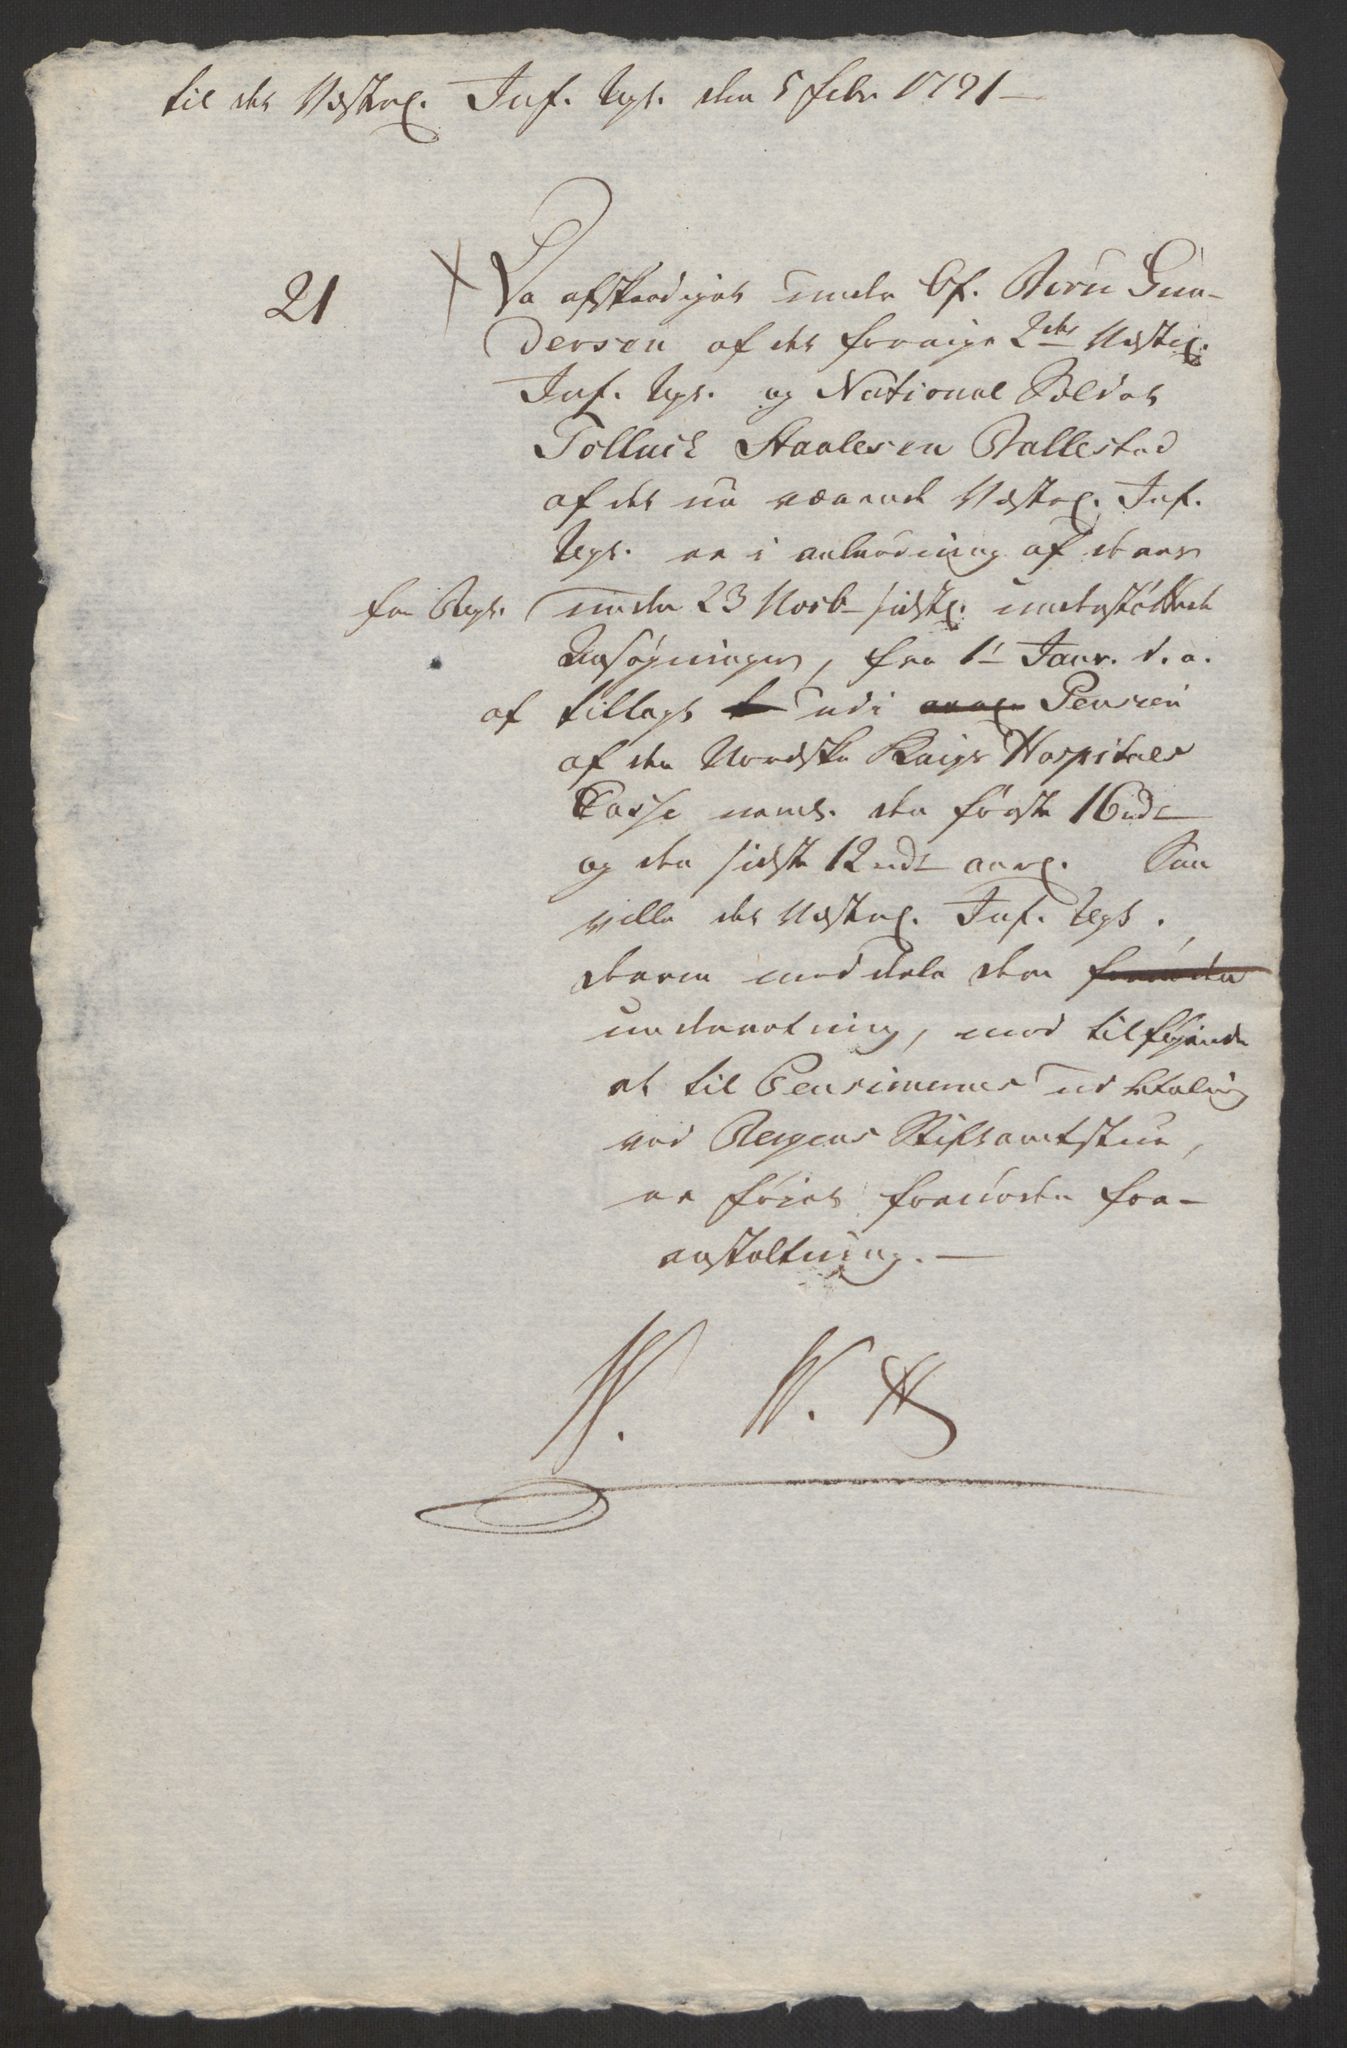 til det Vesterl. Inf. Rgt. den 5 febr 1791 —
21
Da afskediget under Of. Bern Gun-
dersen af det forrige 2det Vesterl.
Inf. Rgt. og National Soldat
Tollack Staalesen Ballestad
af det nu værende Vesterl. Inf.
Rgt. er i anledning af deres
fra Regt. under 23 Novb sidstl. understøttede
Ansøgninger, fra 1te Janr. d. a.
af tillagt udi Pension
af den Nordske Krigs Hospitals
Casse neml. den første 16 rdr
og den sidste 12 rdr aarl. Saa
ville det Vesterl. Inf. Rgt.
derom meddele dem fornøden
underretning, med tilføyende
at til Pensionernes udbetaling
ved Bergens Stiftsamtstue,
er føiet fornøden for-
anstaltning. —